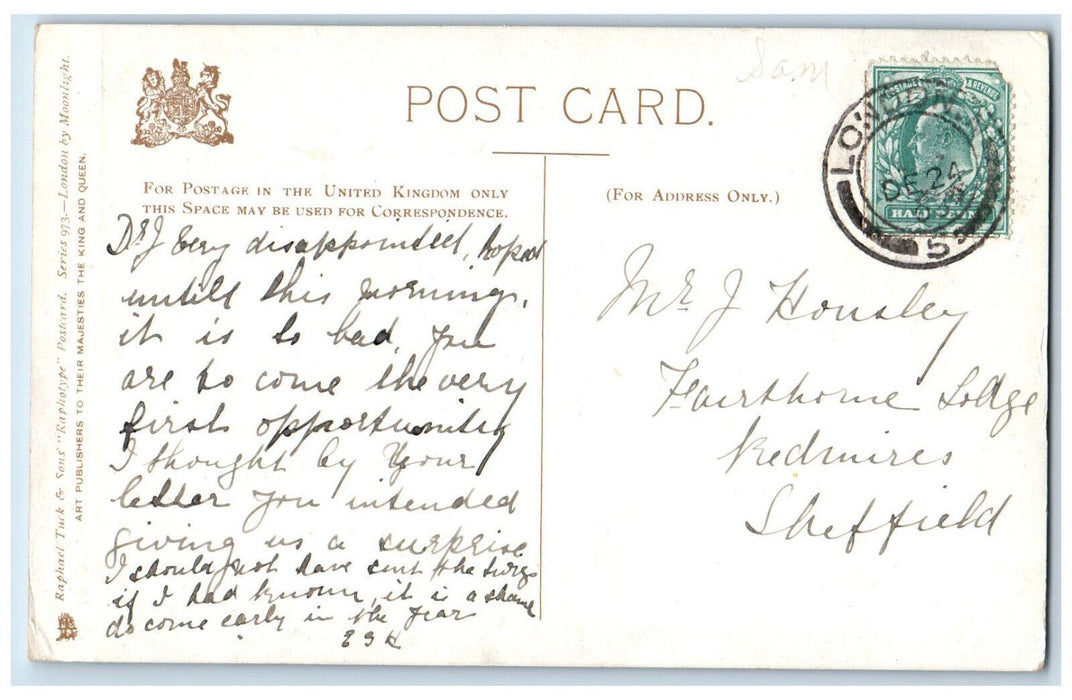 Raphael Tuck & Sons' "Raphotype" Postcard. Series 973.—London by Moonlight.
ART PUBLISHERS TO THEIR MAJESTIES THE KING AND QUEEN.
POST CARD.
FOR POSTAGE IN THE UNITED KINGDOM ONLY
THIS SPACE MAY BE USED FOR CORRESPONDENCE.
(FOR ADDRESS ONLY.)
Sam
LONDON
DE 24
5
HALF PENNY
Dr J Very disappointed, hoped
untill this morning,
it is to bad, you
are to come the very
first opportunity
I thought by Your
letter you intended
giving us a surprise
I should not have sent the
if I had known, it is a shame
do come early in the year
E G H
Mr J Housley
Fairthorne Lodge
Redmires
Sheffield